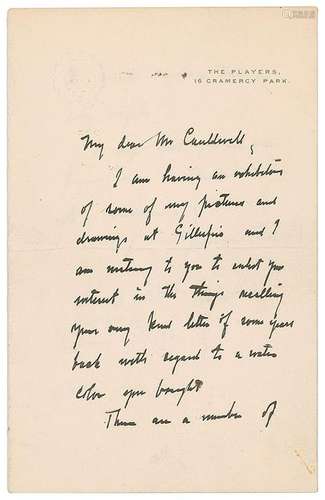 THE PLAYERS,
16 GRAMERCY PARK.
My dear Mr Cauldwell,
I am having an exhibition
of some of my pictures and
drawings at Gillespie and I
am writing to you to enlist your
interest in the things recalling
your very kind letter of some years
back with regard to a water
color you bought
There are a number of